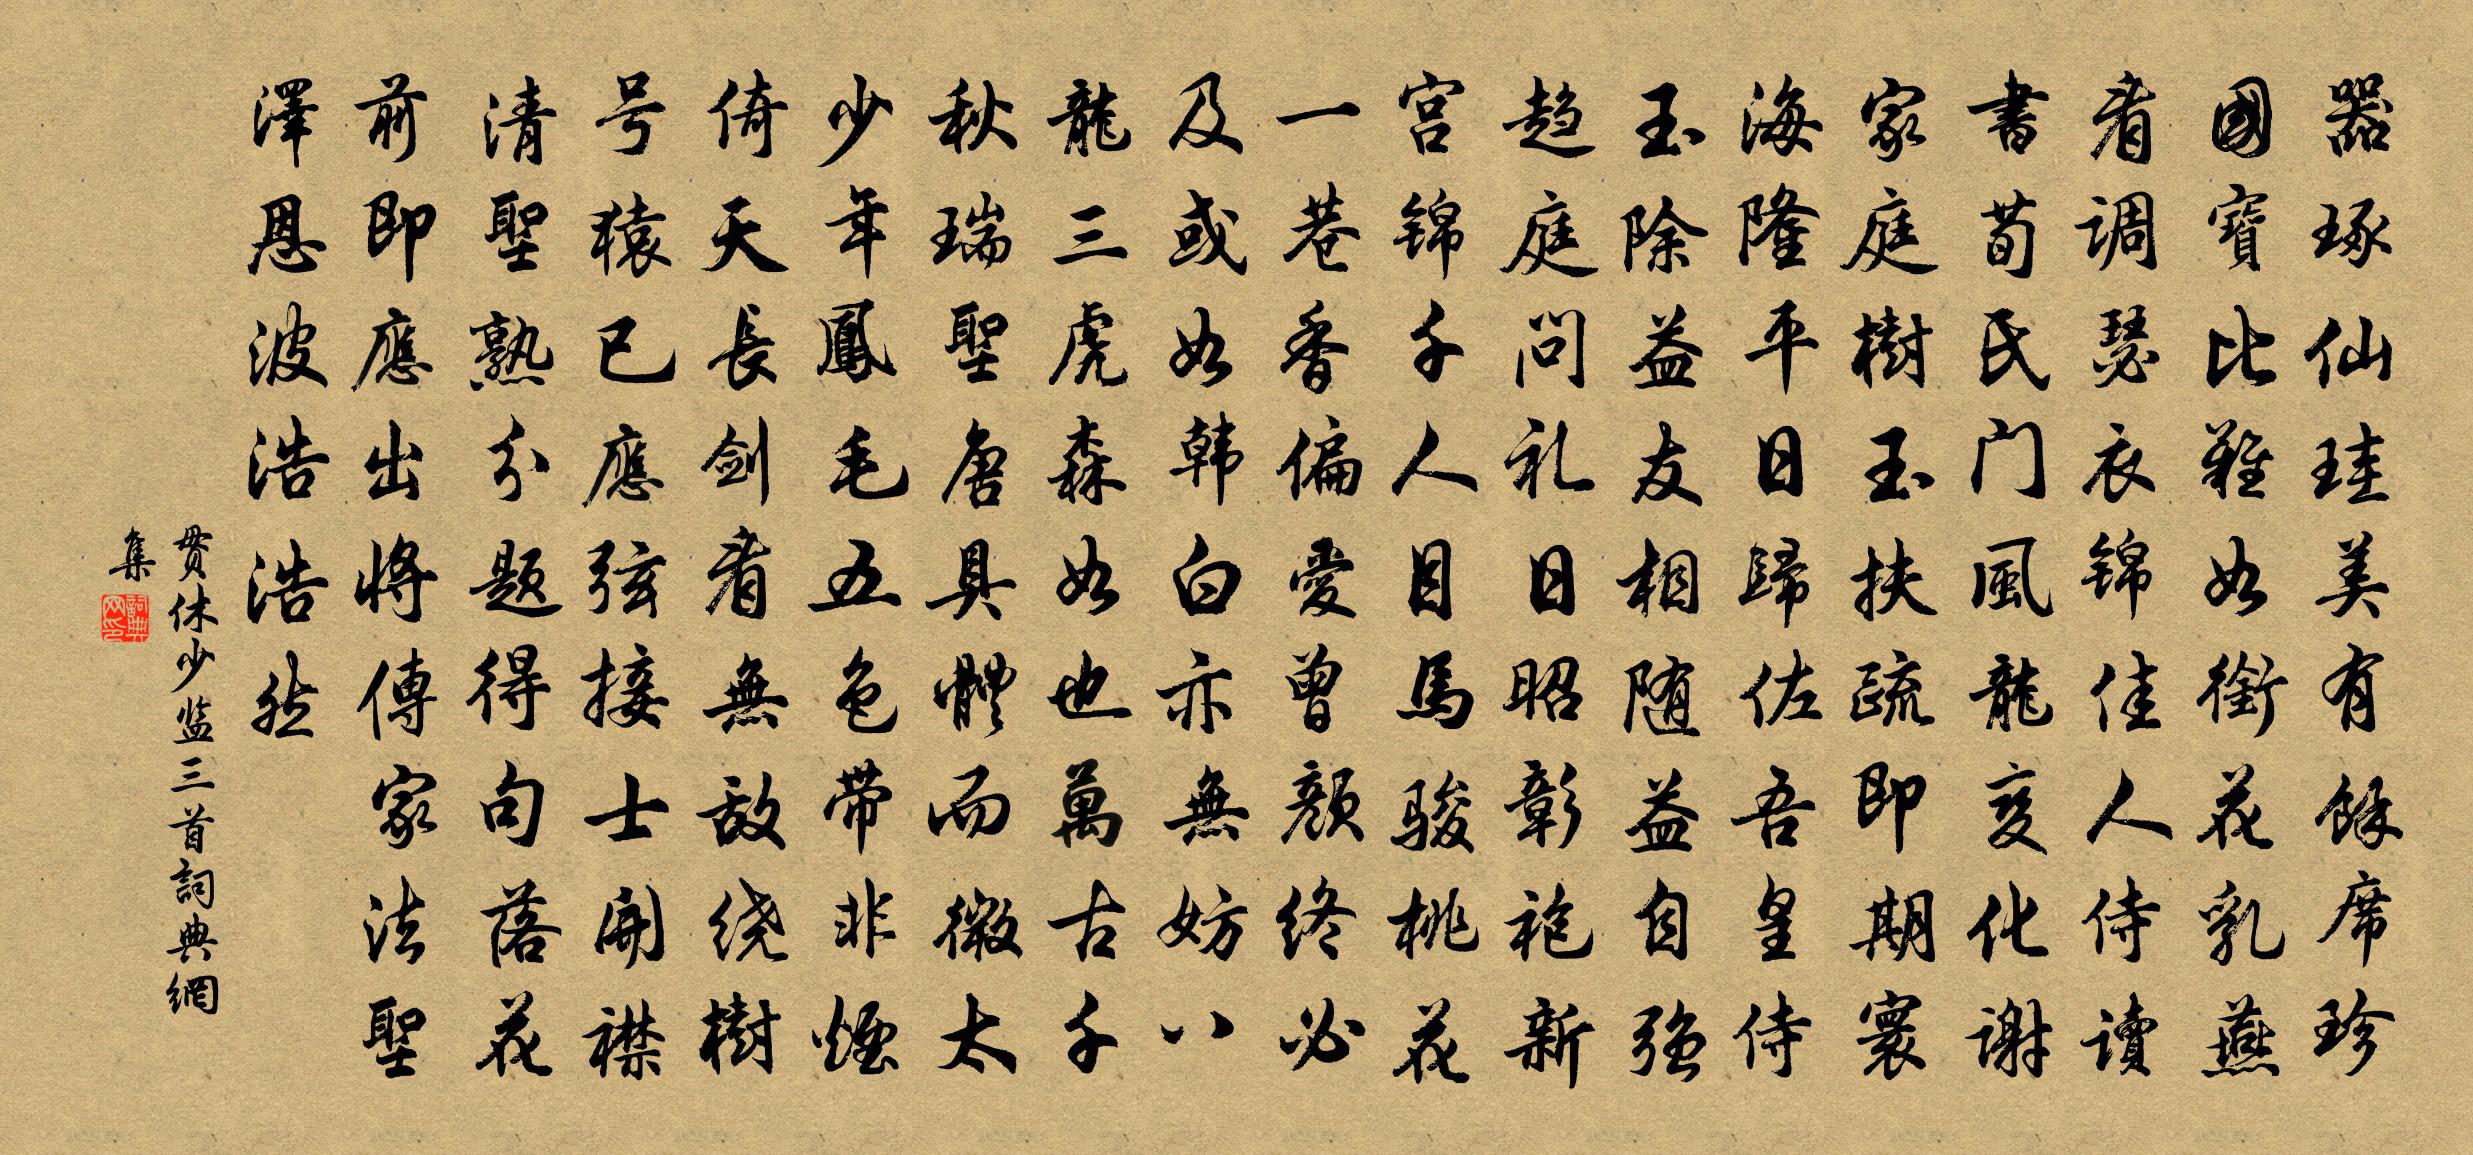 器琢仙珪美有餘席珍
國寶比難如銜花乳燕
看调瑟衣锦佳人侍讀
書荀氏门風龍变化谢
家庭樹玉扶疏即期寰
海隆平日歸佐吾皇侍
玉除益友相随益自强
趋庭问礼日昭彰袍新
宫锦千人目馬骏桃花
一巷香偏愛曾颜终必
及或如韩白亦無妨八
龍三虎森如也萬古千
秋瑞聖唐具體而微太
少年鳳毛五色带非煙
倚天長剑看無敌绕樹
号猿已應弦接士開襟
清聖熟分题得句落花
前即應出將傳家法聖
澤恩波浩浩然
贯休少监三首詞典網
集
詞典网印